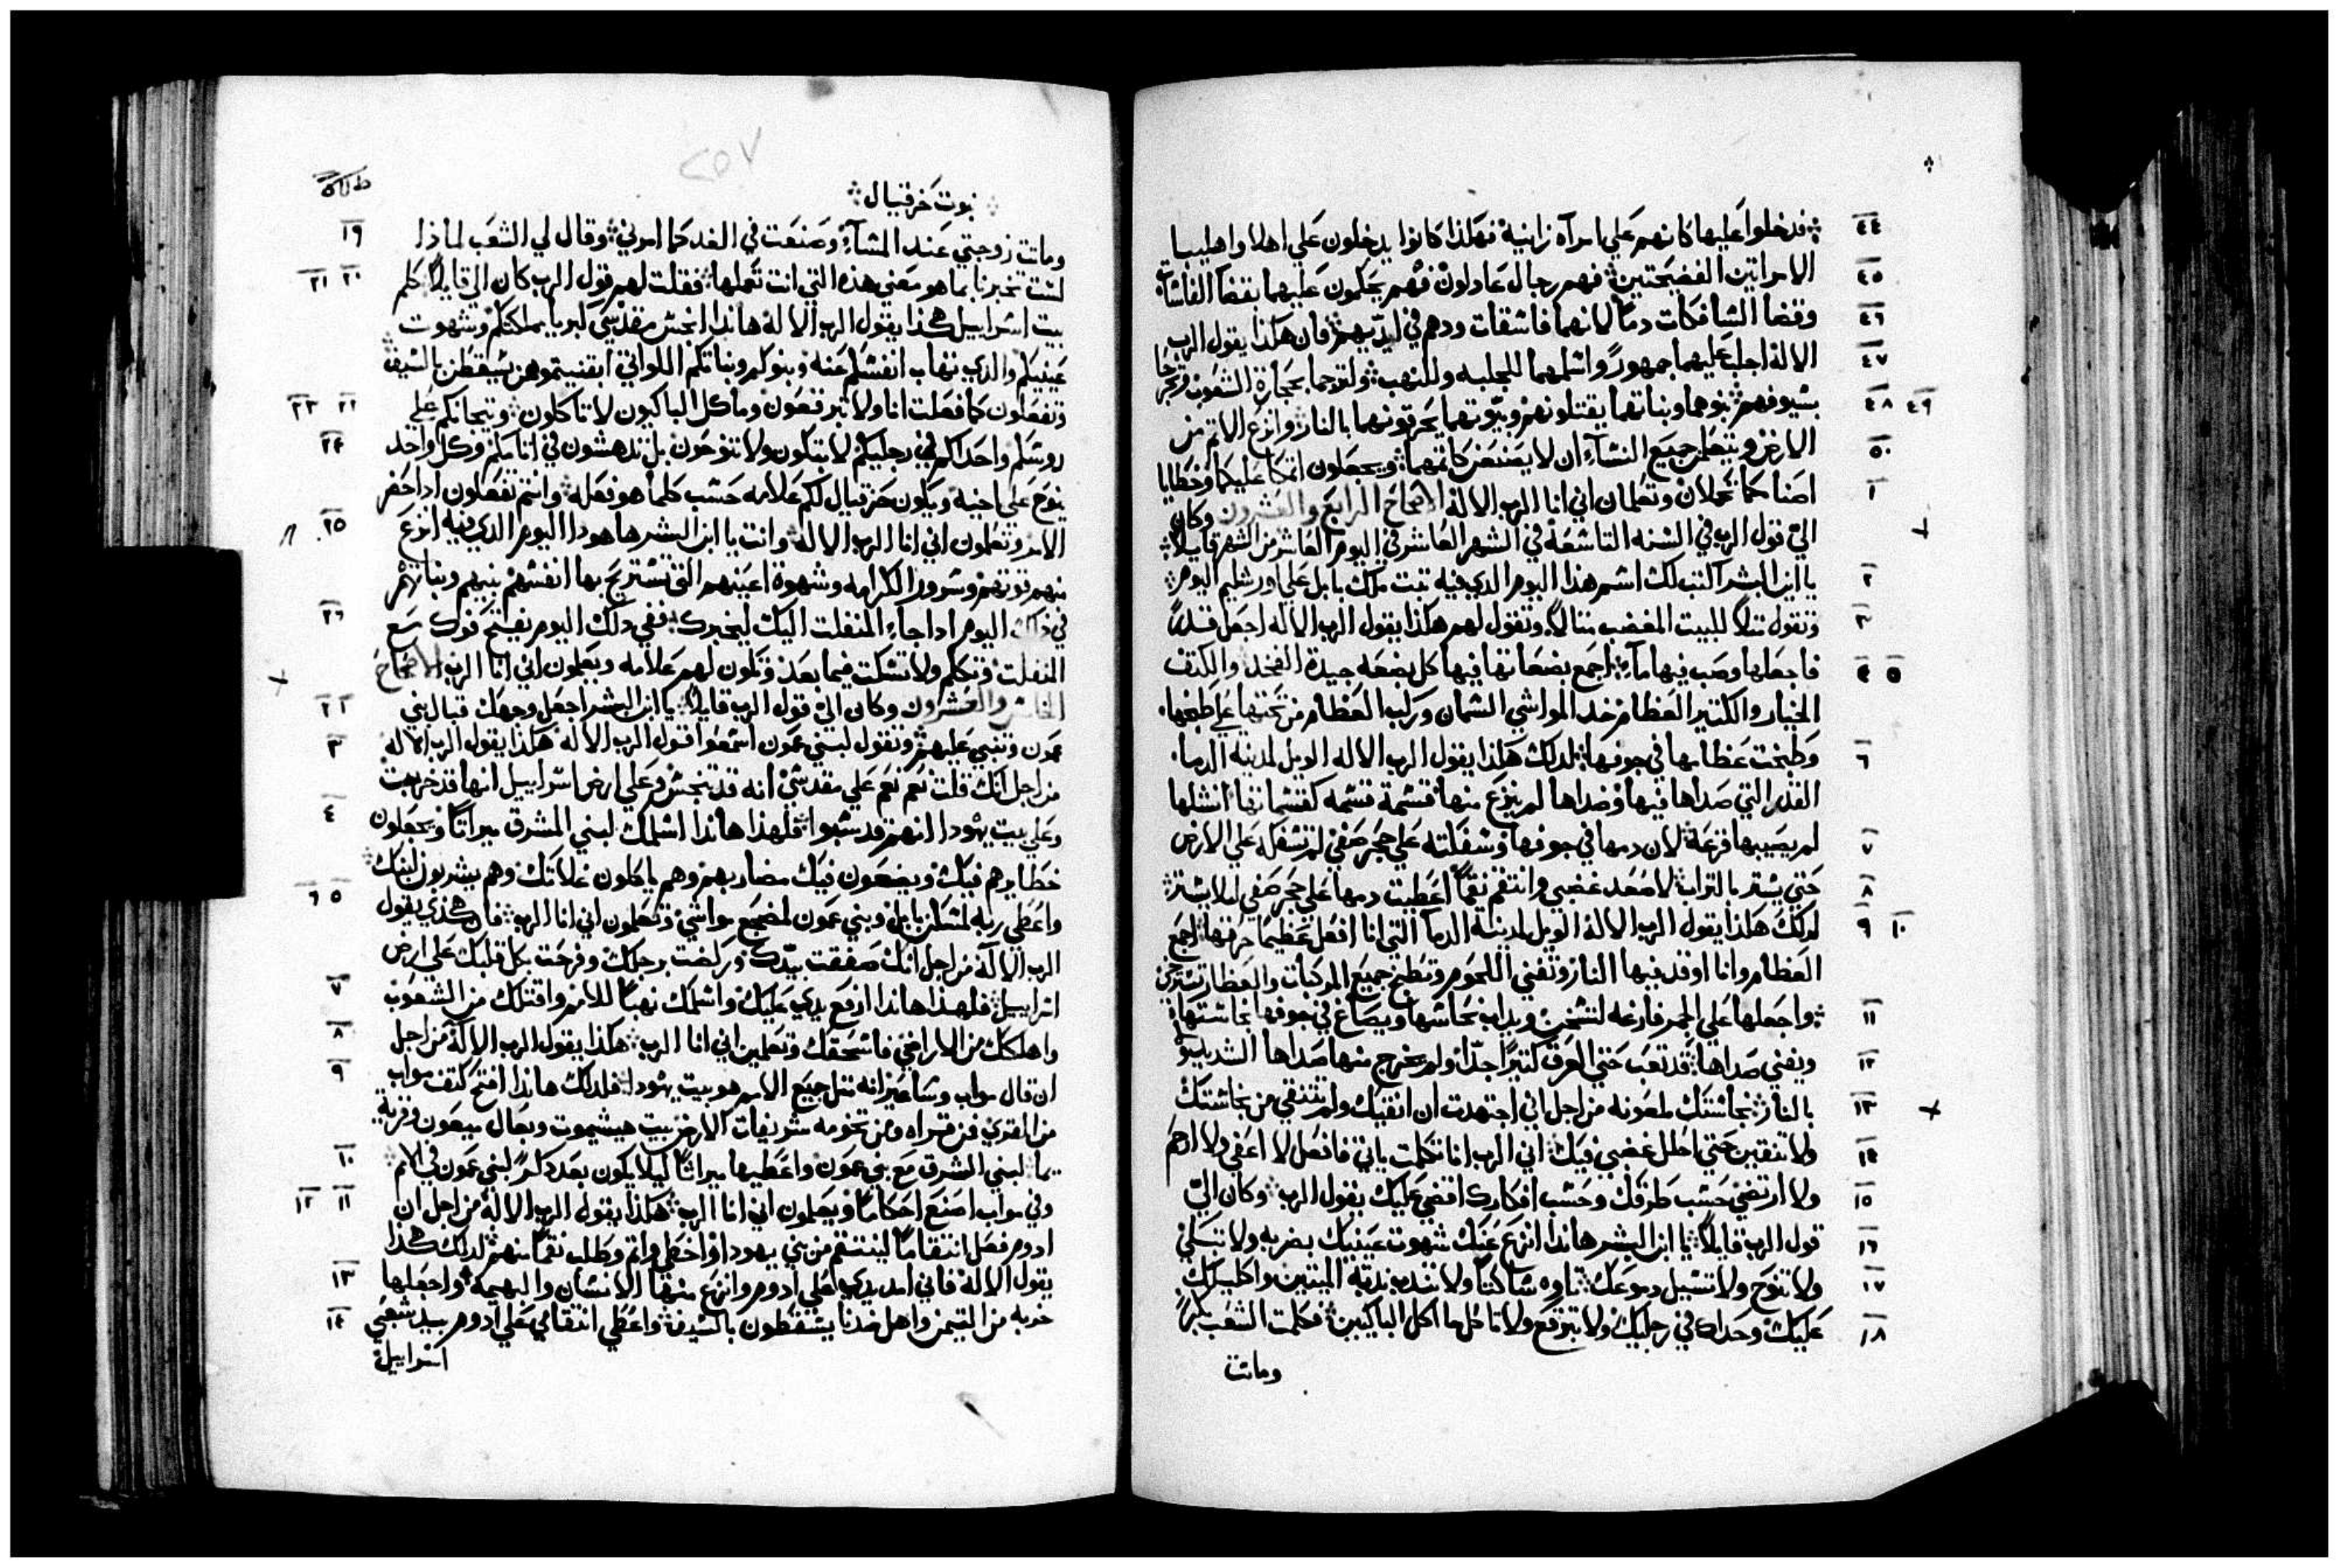 فدخلوا عليها كانهم على امرآه زانية فهكذا كانوا يدخلون علي اهلا واهليبا ٤٤
الامراتين الفضيحتين فهم رجال عادلون فهم يحكمون عليهما بقضا الفاسقات ٤٥
وقضا السافكات دما لانهما فاسقات ودم في ايديهم فان هكذا يقول الرب ٤٦
الاله اجلب عليهما جمهورا واسلمهما للجلبه وللنهب ولترجما بحجارة الشعوب ٤٧
بسيوفهم بنوهما وبناتهما يقتلونهم وبيوتهما يحرقونهما بالنار وانزع الاثم من ٤٨ ٤٩
الارض ويتعلم جميع النسآء ان لا يصنعن كاثمهما ويجعلون اثمكما عليكما وخطايا ٥٠
اصنامكما تحملان وتعلمان اني انا الرب الاله الاصحاح الرابع والعشرون وكان ١
الي قول الرب في السنه التاسعة في الشهر العاشر في اليوم العاشر من الشهر قايلا
يا ابن البشر اكتب لك اسم هذا اليوم الدي فيه ثبت ملك بابل علي اورشليم اليوم ٢
وتقول مثلا للبيت المغضب مثالا وتقول لهم هكذا يقول الرب الاله اجعل قدرا ٣
فاجعلها وصب فيها مآء اجمع بضعاتها فيها كل بضعه جيدة الفخد والكتف ٤ ٥
الخيار والكثير العظام خد المواشي السمان وركب العظام من تحتها علي طبخها
وطبخت عظامها في جوفها لدلك هكذا يقول الرب الاله الويل لمدينه الدما ٦
القدر التي صداها فيها وصداها لم ينزع منها قسمة قسمه كقسماتها انشلها
لم يصيبها قرعة لان دمها في جوفها وسفكته علي حجر صفي لم تسفكه علي الارض ٧
حتي يستر بالتراب لاصعد غضبي وانتقم نقما اعطيت دمها علي حجر صفي ليلا يستر ٨
لدلك هكذا يقول الرب الاله الويل لمدينة الدما التي انا افعل عظيما حرقها اجمع ٩ ١٠
العظام وانا اوقد فيها النار وتفني اللحوم وتطبخ جميع المركبات والعظام
واجعلها علي الجمر فارغه لتسخن ويداب نحاسها ويصاغ في جوفها نجاستها ١١
ويفني صداها قد تعب حتي العرق كثيرا جدا ولم يخرج منها صداها الشديد ١٢
بالنار نجاستك ملعونه من اجل اني اجتهدت ان انقيك ولم تتنقي من نجاستك ١٣
ولا تنقين حتي احلل غضبي فيك اني الرب انا تكلمت ياتي فافعل لا اعفي ولا ارحم ١٤
ولا ارتضي حسب طرقك وحسب افكارك اقضي عليك يقول الرب وكان الي ١٥
قول الرب قايلا يا ابن البشر هاندا انزع عنك شهوت عينيك بضربه ولا تبكي ١٦
ولا تنوح ولا تسيل دموعك تاوه ساكتا ولا تندب ندبة الميتين واكليلك ١٧
عليك وحداك في رجليك ولا تبرقع ولا تاكل ماكل الباكيين فكلمت الشعب بكرا ١٨
وماتت
٢٥٧
نبوت حزقيال
وماتت زوجتي عند المسآء وصنعت في الغد كما امرني وقال لي الشعب لماذا ١٩
لست تخبرنا بما هو معني هذه التي انت تعملها فقلت لهم قول الرب كان الي قايلا كلم ٢٠ ٢١
بيت اسراييل هكذا يقول الرب الاله هاندا انجس مقدسي كبريا مملكتكم وشهوت
عينيكم والدي تهاب انفسكم عنه وبنوكم وبناتكم اللواتي ابقيتموهن يسقطن بالسيف
وتفعلون كما فعلت انا ولا تبرقعون وماكل الباكيون لا تاكلون وتيجانكم علي ٢٢ ٢٣
روسكم واحداكم في رجليكم لا تبكون ولا تنوحون بل تدهشون في اثامكم وكل واحد ٢٤
ينوح علي اخيه ويكون حزقيال لكم علامه حسب كلما هو فعله وانتم تفعلون ادا حضر
الامر وتعلمون اني انا الرب الاله وانت يا ابن البشر ها هودا اليوم الدي فيه انزع ٢٥
منهم قوتهم وسرور الكرامه وشهوة اعينهم التي تستريح بها انفسهم بنيهم وبناتهم
في ذلك اليوم ادا جاء المنفلت اليك ليخبرك ففي دلك اليوم يفتح فوك مع ٢٦
المنفلت وتتكلم ولا تسكت فيما بعد وتكون لهم علامه ويعلمون اني انا الرب الاصحاح
الخامس والعشرون وكان الي قول الرب قايلا يا ابن البشر اجعل وجهك قبال بني ٢
عمون وتنبي عليهم وتقول لبني عمون اسمعوا قول الرب الاله هكذا يقول الرب الاله ٣
من اجل انك قلت نعم نعم علي مقدسي انه قد تنجس وعلي ارض اسراييل انها قد خربت
وعلي بيت يهودا انهم قد سبوا فلهذا هاندا اسلمك لبني المشرق ميراثا ويجعلون ٤
حظايرهم فيك ويضعون فيك مضاربهم وهم ياكلون غلاتك وهم يشربون لبنك
واعطي ربه لمسكن بابل وبني عمون لمضجع مواشي وتعلمون اني انا الرب فان هكذي يقول ٥ ٦
الرب الاله من اجل انك صفقت بيدك وركضت برجلك وفرحت بكل قلبك علي ارض
اسراييل فلهذا هاندا ارفع يدي عليك واسلمك نهبا للامم واقتلك من الشعوب ٧
واهلكك من الاراضي فاسحقك وتعلمين اني انا الرب هكذا يقول الرب الاله من اجل ٨
ان قال مواب وساعير انه مثل جميع الامم هو بيت يهودا فلدلك هاندا افتح كتف مواب ٩
من القري فمن قراه ومن تخومه شريفات الارض بيت هيشيموت وبعال ميعون وقرية
يما لبني المشرق مع بني عمون واعطيها ميراثا ليلا يكون بعد دكر لبني عمون في الامم ١٠
وفي مواب اصنع احكاما ويعلمون اني انا الرب هكذا يقول الرب الاله من اجل ان ١١ ١٢
ادوم فعل انتقاما لينتقم من بني يهودا واخطي واثم وطلب نقما منهم لدلك هكذا
يقول الاله فاني امد يدي علي ادوم وانزع منها الانسان والبهيمة واجعلها ١٣
خربه من التيمن واهل ددنا يسقطون بالسيف واعطي انتقامي علي ادوم بيد شعبي ١٤
اسراييل